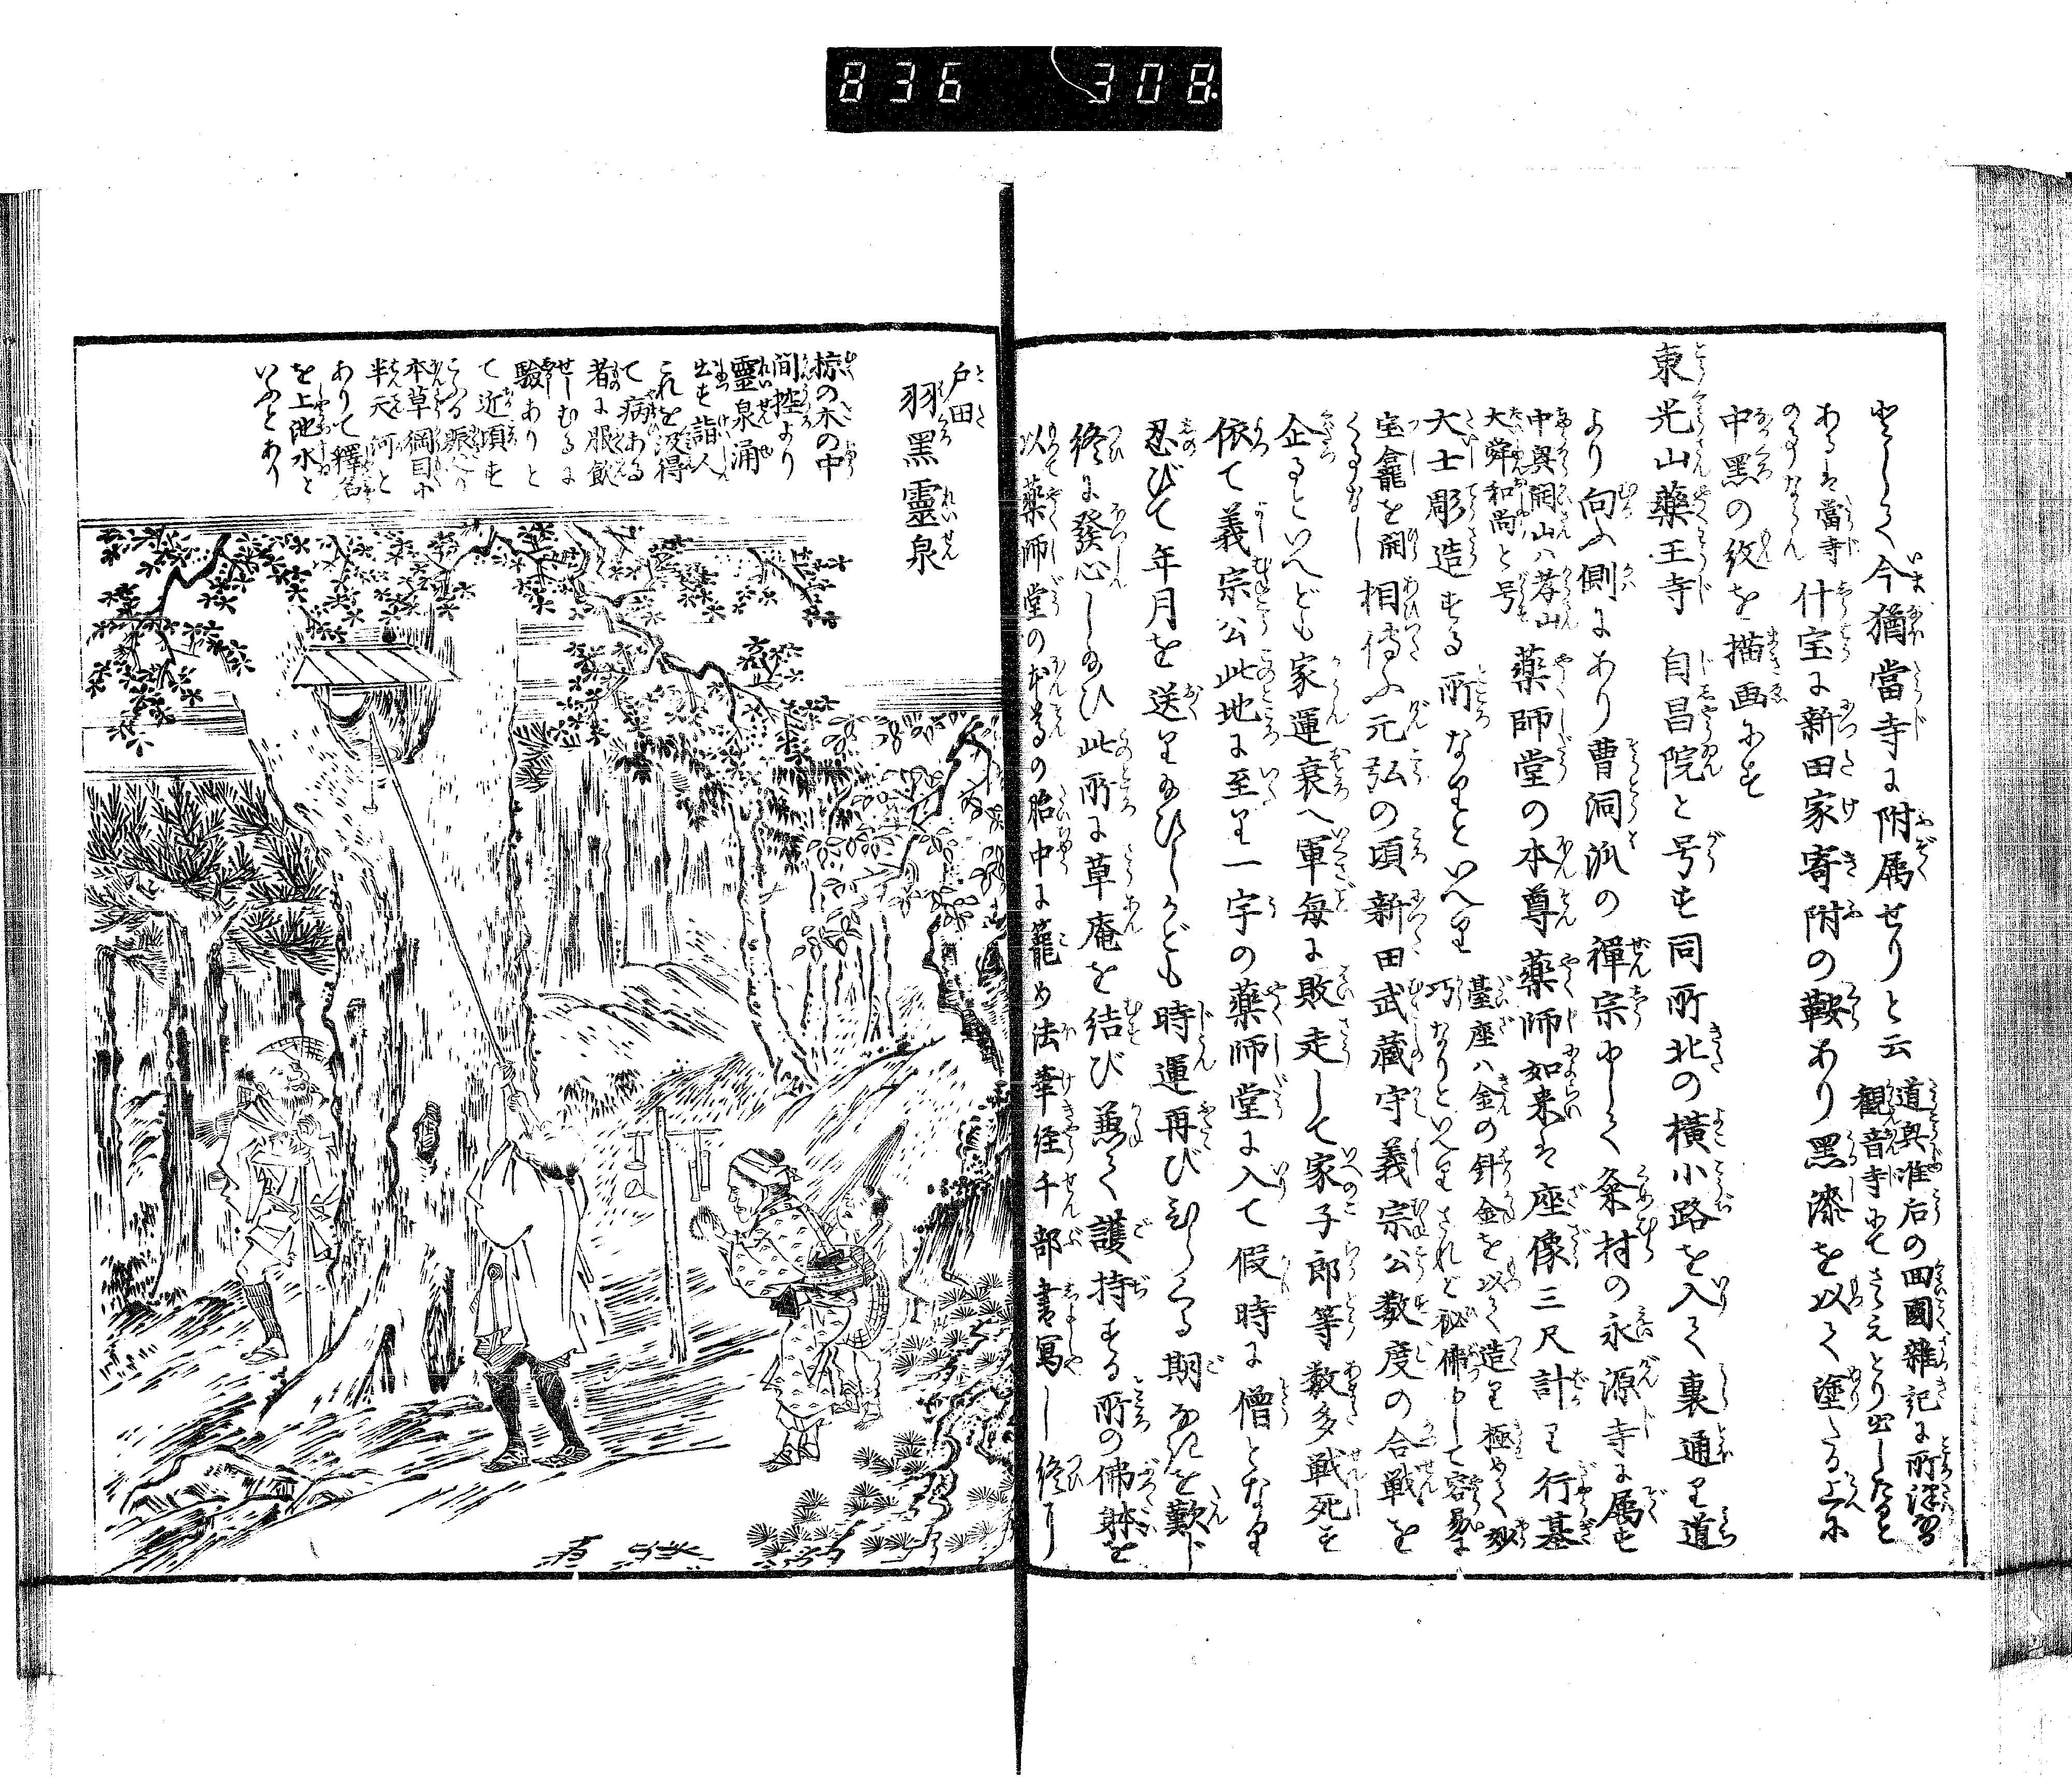 836 308
今猶當寺に附属せりと云 道興准后の回國雑記に所澤
觀音寺にてさゝえとり出しけると
あるは當寺
のことならん 什宝に新田家寄附の鞍あり黒漆を以て塗たる上に
中黒の紋を描画にす
東光山藥王寺 自昌院と号す同所北の横小路を入て裏通り道
より向ふ側にあり曹洞派の禅宗にして粂村の永源寺に属す
中興開山ハ孝山
大舜和尚と号す 薬師堂の本尊薬師如来は座像三尺計り行基
大士彫造する所なりといへり 臺座ハ金の針金を以て造り極めて妙
巧なりといへりされど秘佛にして容易に
宝龕を開
くことなし 相傳ふ元弘の頃新田武蔵守義宗公数度の合戦を
企るといへども家運衰へ軍毎に敗走して家子郎等数多戦死す
依て義宗公此地に至り一宇の薬師堂に入て假時に僧となり
忍びて年月を送り給ひしかども時運再びひらくる期なきを歎じ
終に發心し給ひ此所に草庵を結び兼て護持する所の佛躰を
以薬師堂の本尊の胎中に籠め法華経千部書寫し終り
戸田
羽黒靈泉
椋の木の中
間控より
靈泉涌
出す詣人
これを汲得
て病ある
者に服飲
せしむるに
驗ありと
て近頃す
こふる賑へり
本草綱目に
半天河と
ありて釋名
を上池水と
いふとあり